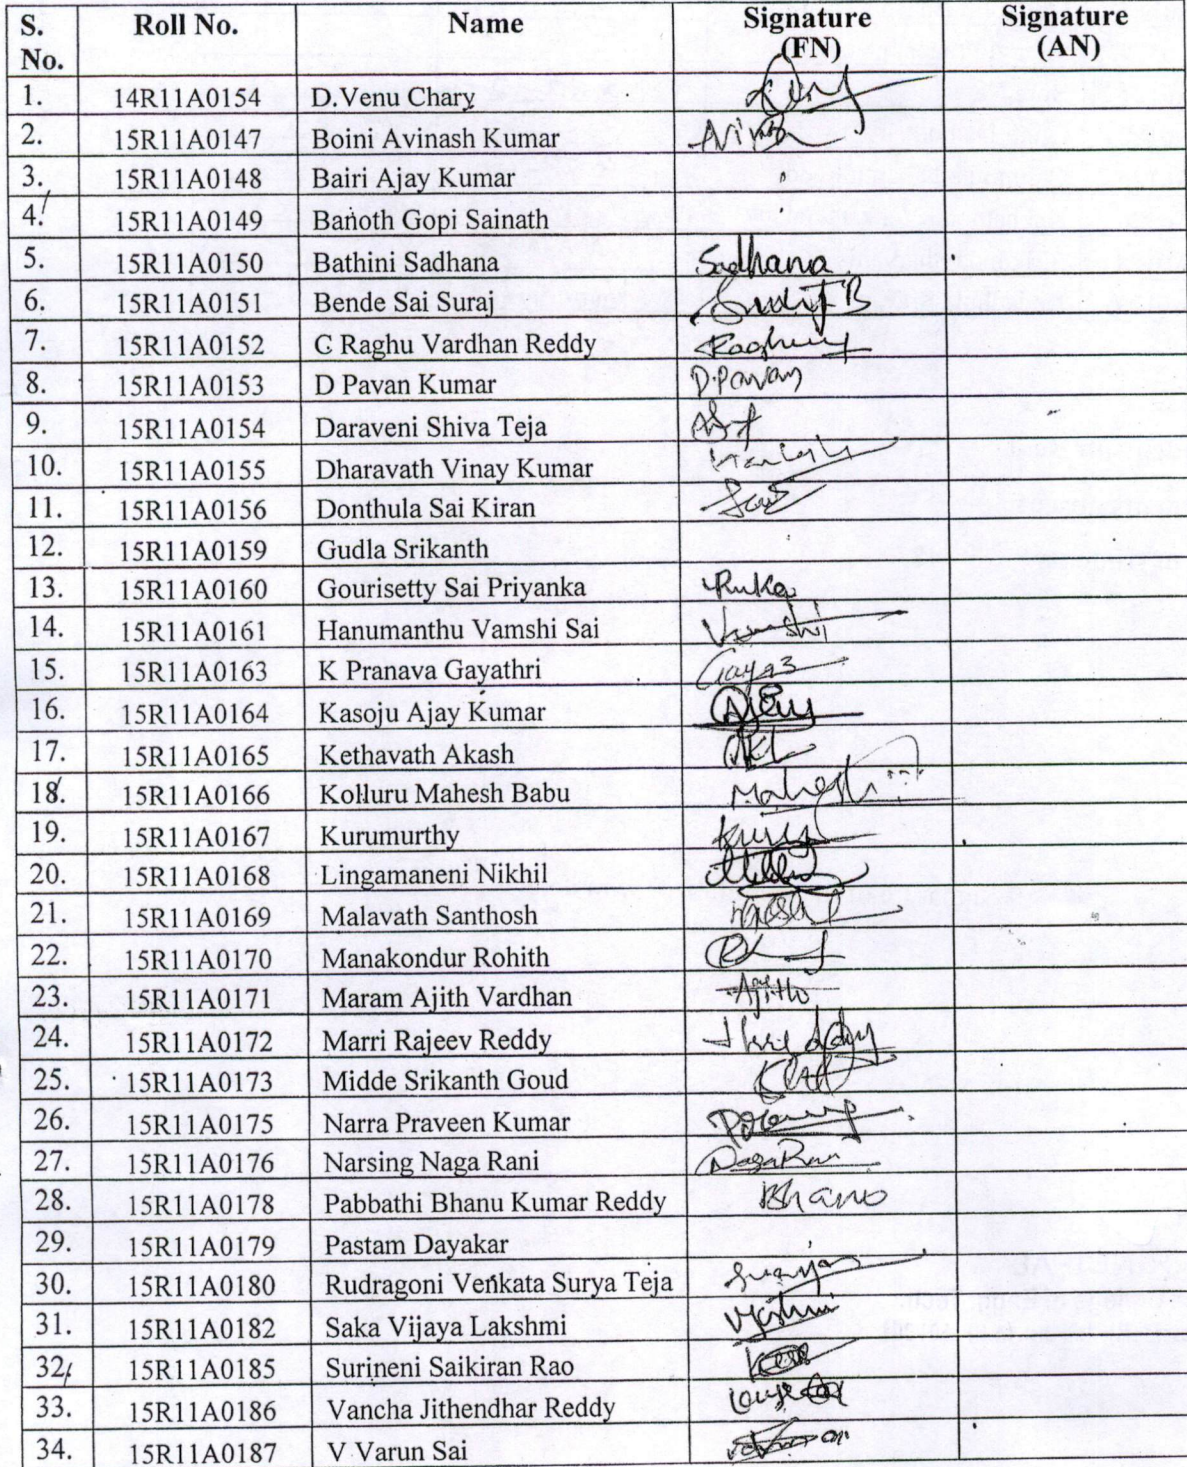 S. No. Roll No. Name Signature (FN) Signature (AN)
1. 14R11A0154 D.Venu Chary
2. 15R11A0147 Boini Avinash Kumar
3. 15R11A0148 Bairi Ajay Kumar
4. 15R11A0149 Banoth Gopi Sainath
5. 15R11A0150 Bathini Sadhana Sadhana
6. 15R11A0151 Bende Sai Suraj
7. 15R11A0152 C Raghu Vardhan Reddy
8. 15R11A0153 D Pavan Kumar D.Pavan
9. 15R11A0154 Daraveni Shiva Teja
10. 15R11A0155 Dharavath Vinay Kumar
11. 15R11A0156 Donthula Sai Kiran
12. 15R11A0159 Gudla Srikanth
13. 15R11A0160 Gourisetty Sai Priyanka
14. 15R11A0161 Hanumanthu Vamshi Sai Vamshi
15. 15R11A0163 K Pranava Gayathri
16. 15R11A0164 Kasoju Ajay Kumar
17. 15R11A0165 Kethavath Akash
18. 15R11A0166 Kolluru Mahesh Babu Mahesh
19. 15R11A0167 Kurumurthy
20. 15R11A0168 Lingamaneni Nikhil
21. 15R11A0169 Malavath Santhosh
22. 15R11A0170 Manakondur Rohith
23. 15R11A0171 Maram Ajith Vardhan Ajith
24. 15R11A0172 Marri Rajeev Reddy
25. 15R11A0173 Midde Srikanth Goud
26. 15R11A0175 Narra Praveen Kumar
27. 15R11A0176 Narsing Naga Rani NagaRani
28. 15R11A0178 Pabbathi Bhanu Kumar Reddy Bhanu
29. 15R11A0179 Pastam Dayakar
30. 15R11A0180 Rudragoni Venkata Surya Teja
31. 15R11A0182 Saka Vijaya Lakshmi
32. 15R11A0185 Surineni Saikiran Rao
33. 15R11A0186 Vancha Jithendhar Reddy
34. 15R11A0187 V Varun Sai